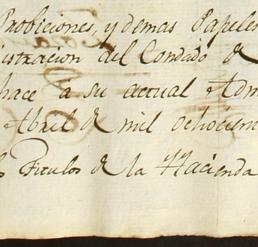 Probiciones, y demas Papeles
istracion del Condado de
hace a su actual Adm
Abril de mil ochocient
s Titulos de la Hacienda